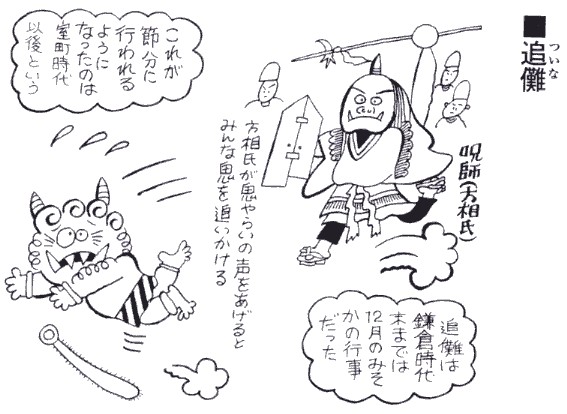 ■追儺
ついな
呪師(方相氏)
追儺は
鎌倉時代
末までは
12月のみそ
かの行事
だった
方相氏が鬼やらいの声をあげると
みんな鬼を追いかける
これが
節分に
行われる
ように
なったのは
室町時代
以後という